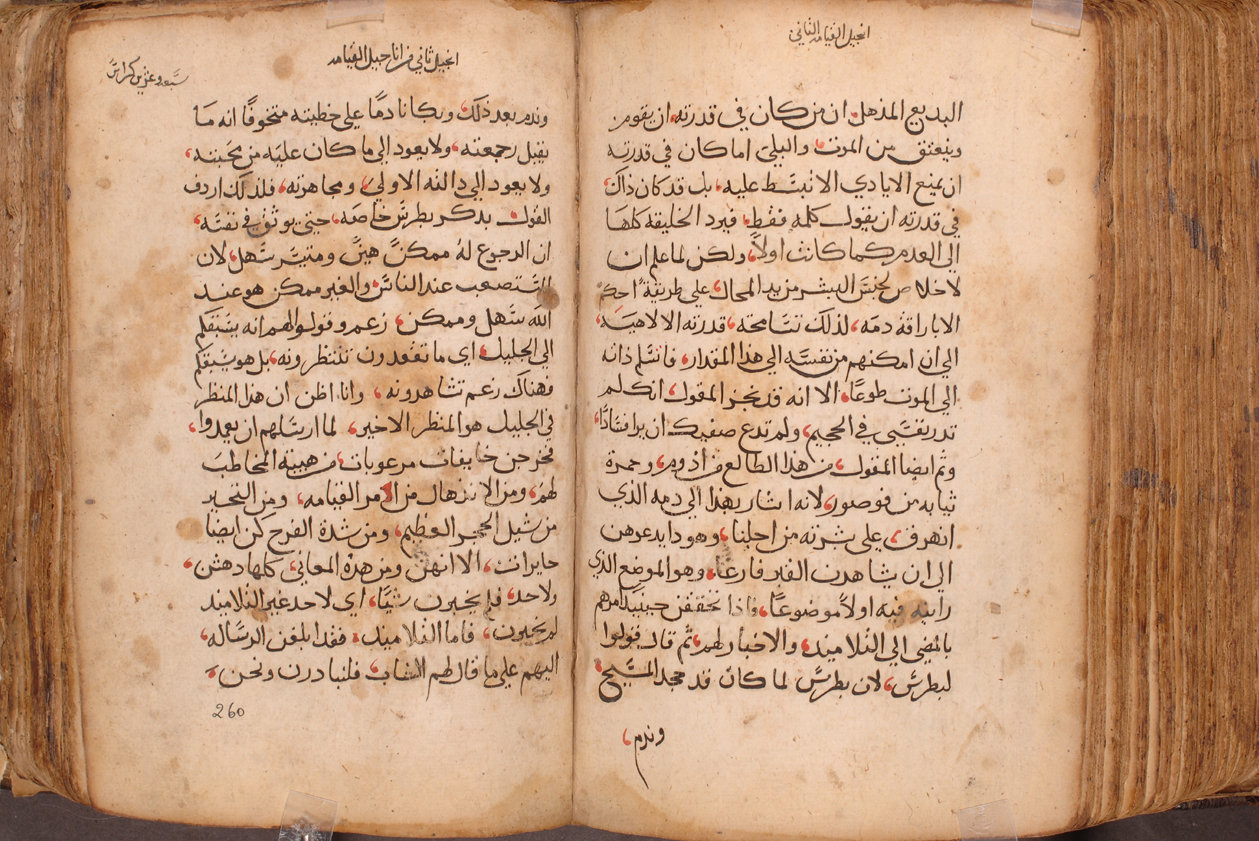 انجيل القيامه الثاني
البديع المذهل ان من كان في قدرته ان يقوم من
وينعتق من الموت والبلي اما كان في قدرته
ان يمنع الايادي الا تنبسط عليه بل قد كان ذاك
في قدرته ان يقول كلمه فقط فيرد الخليقه كلها
الى العدم كما كانت اولاً ولكن لما علم ان
لا خلاص لجنس البشر من يد المحال علي طريقة احكم
الا باراقة دمه لذلك تسامحة قدرته الالاهيه
الي ان امكنهم من نفسه الي هذا المقدار فاسلم ذاته
الي الموت طوعًا الا انه قد نجز المقول انك لم
تدر نفسي في الجحيم ولم تدع صفيك ان يرا فسادًا
وتم ايضا المقول من هذا الطالع من اذوم وحمرة
ثيابه من فوصور لانه اشار بهذا الي دمه الذي
انهرق علي بشرته من اجلنا وهوذا يدعوهن
الى ان يشاهدن القبر فارغًا وهو الموضع الذي
رايته فيه اولاً موضوعًا فاذا تحققن حينيذ امرهم
بالمضي الي التلاميذ والاخبار لهم ثم قال قولوا
لبطرس لان بطرس لما كان قد جحد المسيح
وندم
انجيل ثاني من اناجيل القيامه
سبعه وعشرين كراس
وندم بعد ذلك وبكا نادمًا علي خطيته متخوفًا انه ما
يقبل رجعته ولا يعود الي ما كان عليه من محبته
ولا يعود الي دالته الاولي ومجاهرته فلذلك اردف
القول بذكر بطرس خاصه حتي يوثق في نفسه
ان الرجوع له ممكنً هينً ومتيسر سهل لان
المستصعب عند الناس والغير ممكن هو عند
الله سهل وممكن زعم وقولوا لهم انه يسبقكم
الي الجليل اي ما تقعدون تنتظرونه بل هو يسبقكم
وهناك زعم تشاهدونه وانا اظن ان هذا المنظر
في الجليل هو المنظر الاخير لما ارسلهم ان يعمدوا
فخرجن خايفات مرعوبات من هيبة المخاطب
لهم ومن الانذهال من امر القيامه ومن التحير
من شيل الحجر العظيم ومن شدة الفرح كن ايضا
حايرات الا انهن ومن هذه المعاني كلها دهشن
ولاحد فلم يخبرون شيًا اي لاحد غير التلاميذ
لم يخبرون فاما التلاميذ فقد ابلغن الرساله
اليهم علي ما قال لهم الشاب فلنبادرن ونحن
260